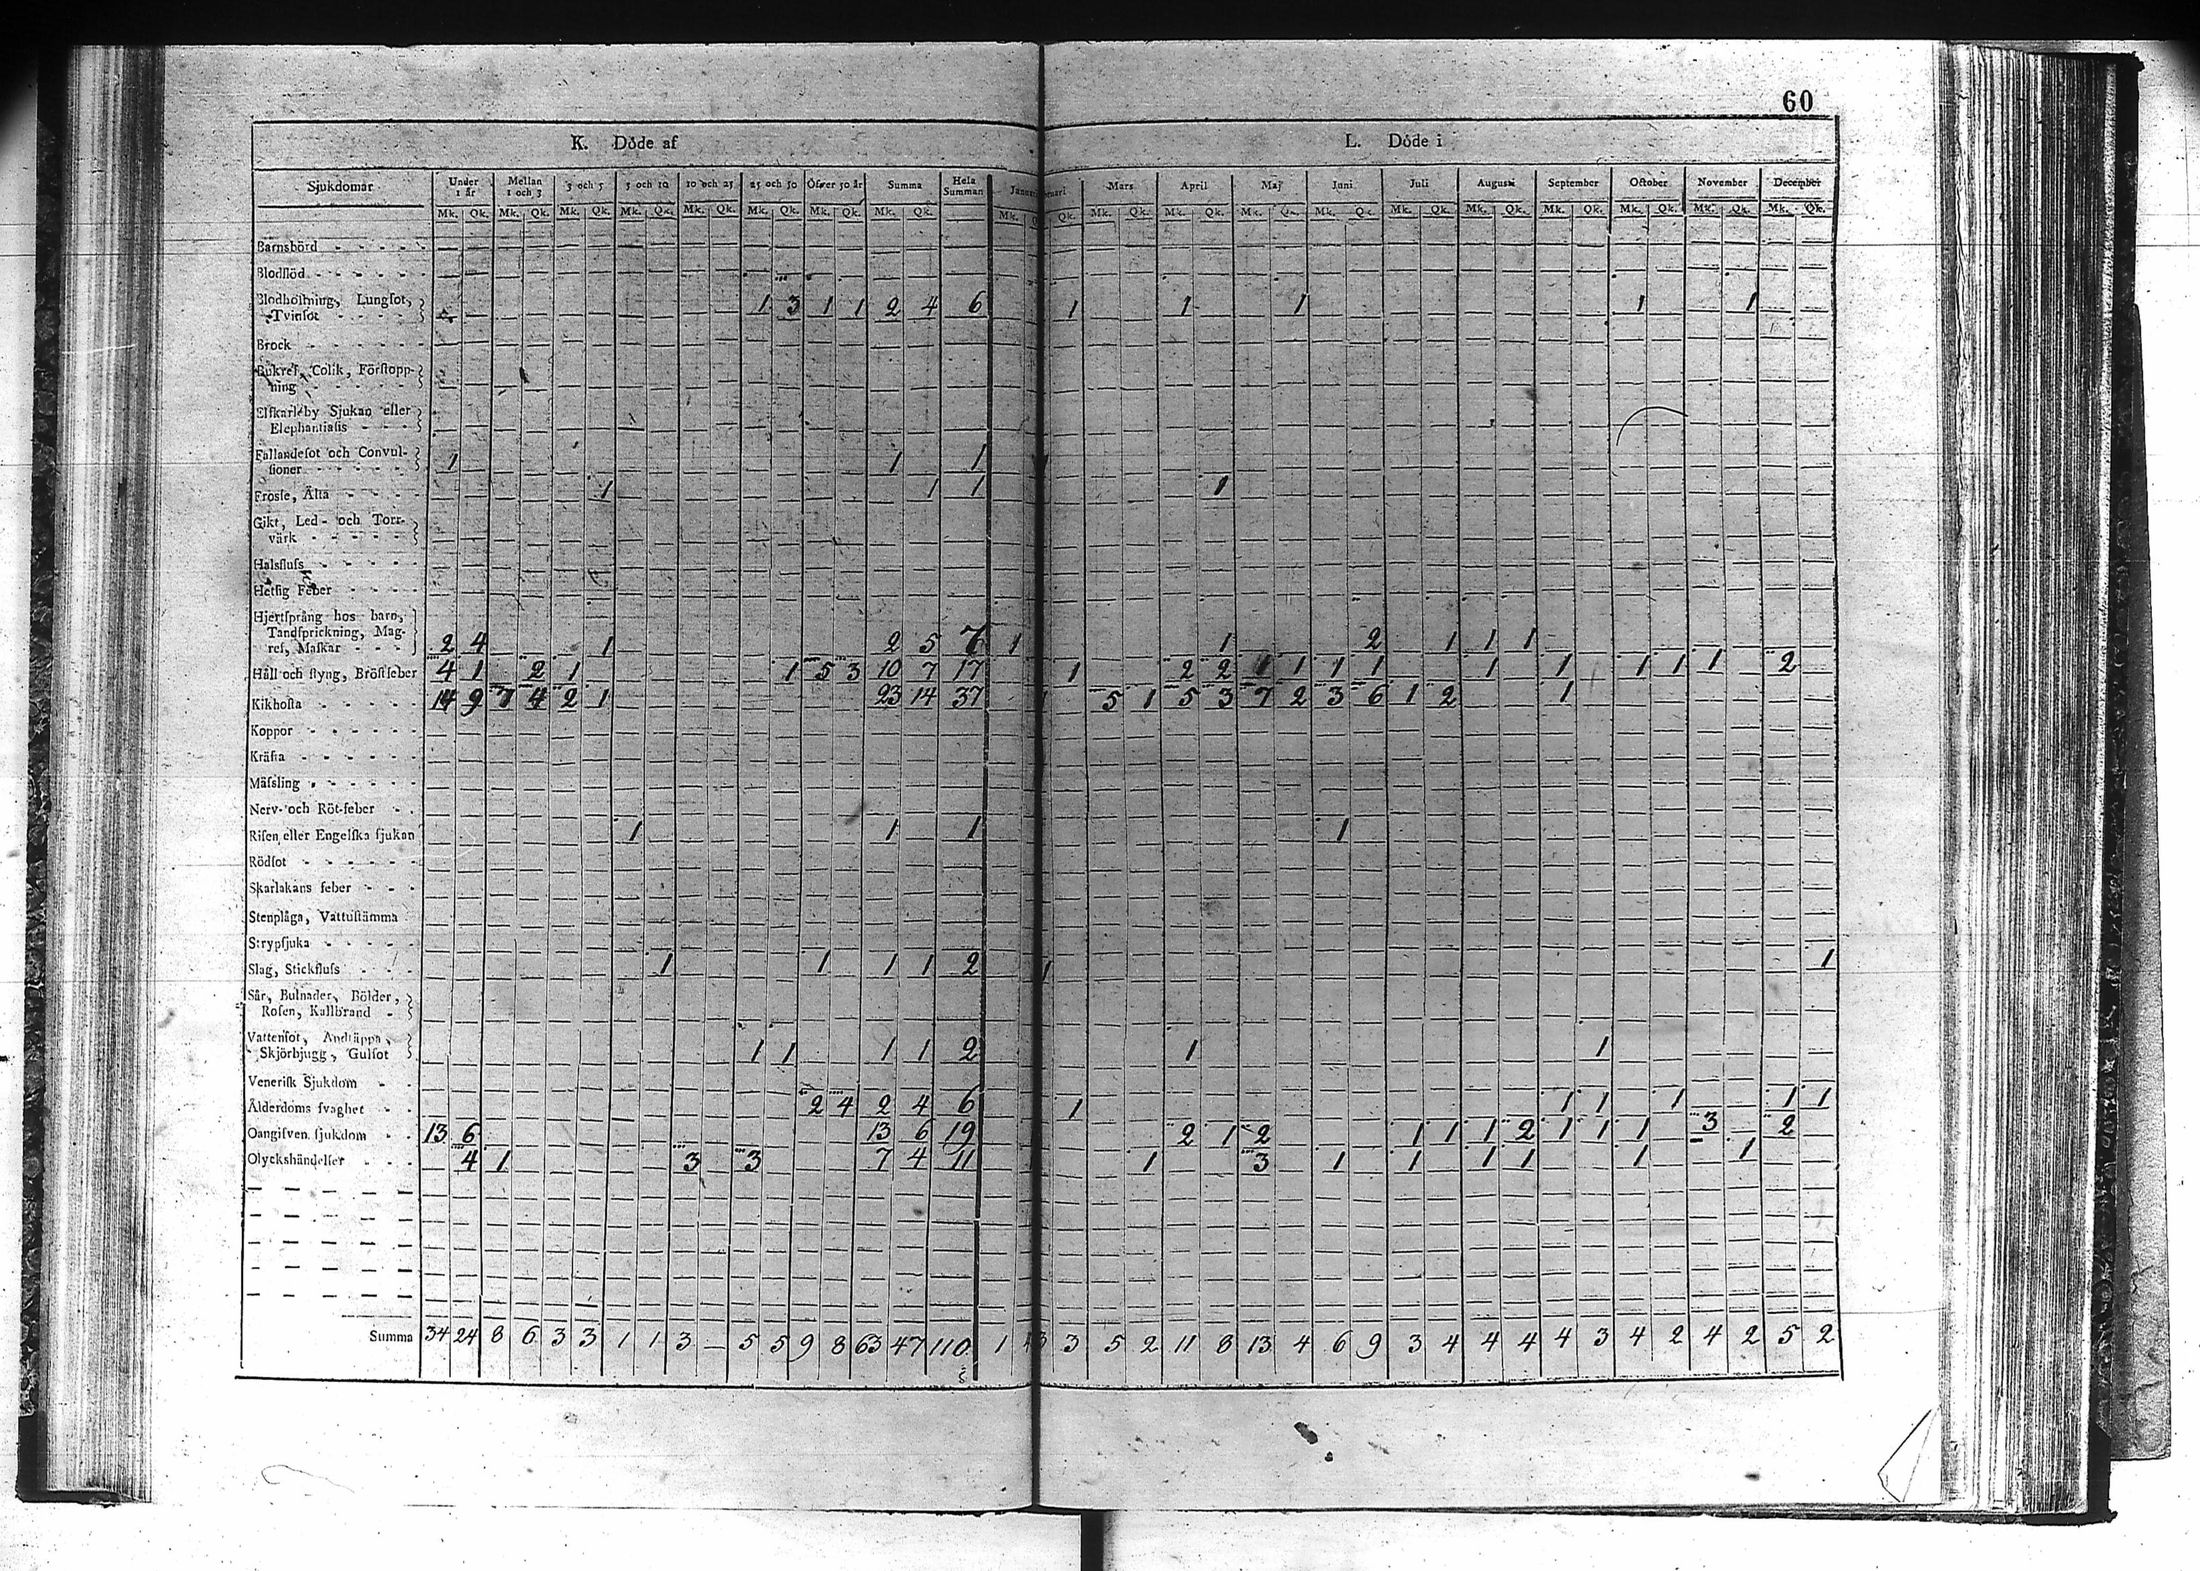 60
K. Döde af
L. Döde i
Sjukdomar | Under 1 år | Mellan 1 och 3 | 3 och 5 | 5 och 10 | 10 och 25 | 25 och 50 | Öfver 50 år | Summa | Hela Summan | Januari | Mars | April | Maj | Juni | Juli | Augusti | September | October | November | December
Mk. Qk. Mk. Qk. Mk. Qk. Mk. Qk. Mk. Qk. Mk. Qk. Mk. Qk. Mk. Qk. Mk. Qk. Mk. Qk. Mk. Qk. Mk. Qk. Mk. Qk. Mk. Qk. Mk. Qk. Mk. Qk. Mk. Qk. Mk. Qk. Mk. Qk.
Barnsbörd
Blodflöd
Blodhostning, Lungſot,
Tvinſot 1 3 1 1 2 4 6 1 1 1 1 1
Brock
Bukref, Colik, Förſtopp-
ning
Elfkarleby Sjukan eller
Elephantiaſis
Fallandeſot och Convul-
ſioner 1 1 1
Froſſe, Älta 1 1 1 1
Gikt, Led- och Torr-
värk
Halsfluſs
Hetſig Feber
Hjertſprång hos barn,
Tandſprickning, Mag-
ref, Maſkar 2 4 1 2 5 7 1 1 2 1 1 1
Håll och ſtyng, Bröſtfeber 4 1 2 1 1 5 3 10 7 17 1 2 2 1 1 1 1 1 1 1 1 1 2
Kikhoſta 14 9 7 4 2 1 23 14 37 5 1 5 3 7 2 3 6 1 2 1
Koppor
Kräfta
Mäſsling
Nerv- och Röt-feber
Riſen eller Engelſka ſjukan 1 1 1 1
Rödſot
Skarlakans feber
Stenplåga, Vattuſtämma
Strypſjuka
Slag, Stickfluſs 1 1 1 1 2 1 1
Sår, Bulnader, Bölder,
Roſen, Kallbrand
Vattenſot, Andtäppa,
Skjörbjugg, Gulſot 1 1 1 1 2 1 1
Veneriſk Sjukdom
Ålderdoms ſvaghet 2 4 2 4 6 1 1 1 1 1 1
Oangifven ſjukdom 13 6 13 6 19 2 1 2 1 1 1 2 1 1 1 3 2
Olyckshändelſer 4 1 3 3 7 4 11 1 3 1 1 1 1 1 1
Summa 34 24 8 6 3 3 1 1 3 — 5 5 9 8 63 47 110 1 3 5 2 11 8 13 4 6 9 3 4 4 4 4 3 4 2 4 2 5 2